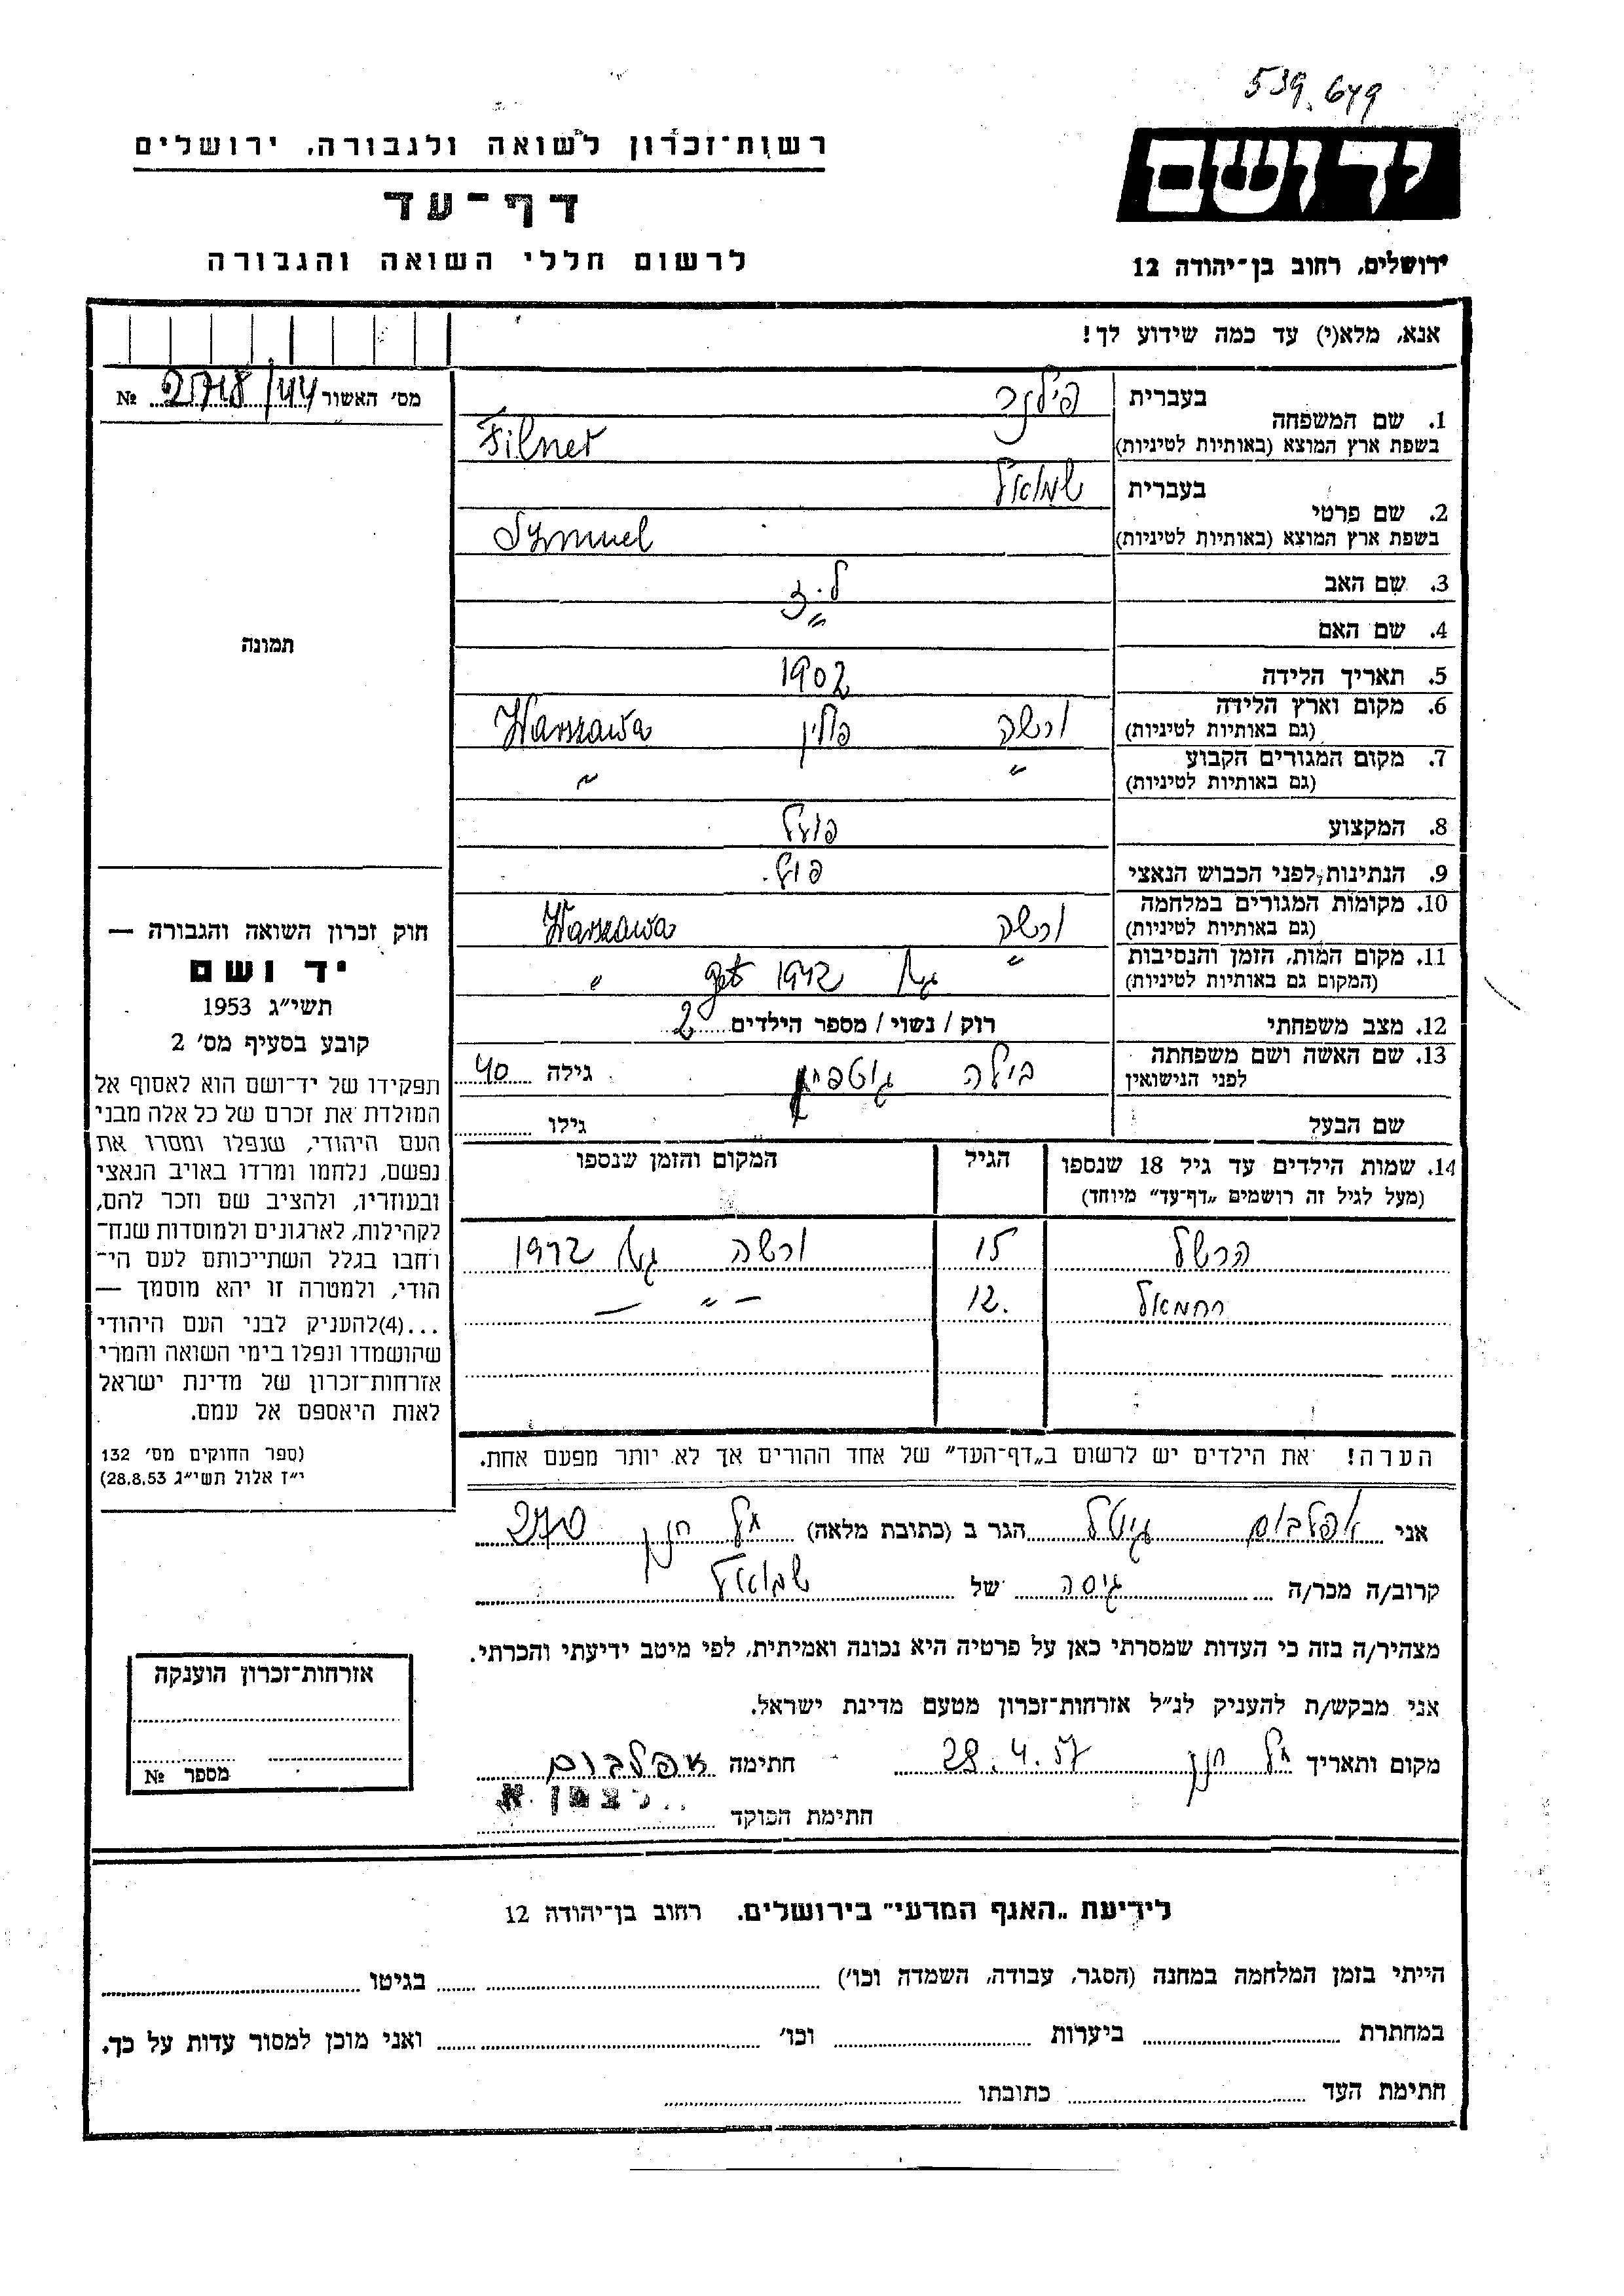 539.649
רשות־זכרון לשואה ולגבורה, ירושלים
דף־עד
לרשום חללי השואה והגבורה
יד ושם
ירושלים, רחוב בן־יהודה 12
אנא, מלא(י) עד כמה שידוע לך!
מס׳ האשור 2718/44 №
1. שם המשפחה
בעברית פילנר
בשפת ארץ המוצא (באותיות לטיניות) Filner
2. שם פרטי
בעברית שמואל
בשפת ארץ המוצא (באותיות לטיניות) Symuel
3. שם האב
4. שם האם "
5. תאריך הלידה 1902
6. מקום וארץ הלידה ורשה פולין Warszawa
(גם באותיות לטיניות)
7. מקום המגורים הקבוע " "
(גם באותיות לטיניות)
8. המקצוע פועל
9. הנתינות לפני הכבוש הנאצי פול.
10. מקומות המגורים במלחמה ורשה Warszawa
(גם באותיות לטיניות)
11. מקום המות, הזמן והנסיבות " גטו 1942 get "
(המקום גם באותיות לטיניות)
12. מצב משפחתי רוק / נשוי / מספר הילדים 2
13. שם האשה ושם משפחתה
לפני הנישואין בילה גילה 40
שם הבעל גילו
14. שמות הילדים עד גיל 18 שנספו הגיל המקום והזמן שנספו
(מעל לגיל זה רושמים „דף־עד” מיוחד)
הרשל 15 ורשה גטו 1942
רחמאל 12. — " —
הערה! את הילדים יש לרשום ב„דף־העד” של אחד ההורים אך לא יותר מפעם אחת.
תמונה
חוק זכרון השואה והגבורה —
יד ושם
תשי״ג 1953
קובע בסעיף מס׳ 2
תפקידו של יד־ושם הוא לאסוף אל
המולדת את זכרם של כל אלה מבני
העם היהודי, שנפלו ומסרו את
נפשם, נלחמו ומרדו באויב הנאצי
ובעוזריו, ולהציב שם וזכר להם,
לקהילות, לארגונים ולמוסדות שנח־
רחבו בגלל השתייכותם לעם הי־
הודי, ולמטרה זו יהא מוסמך —
...(4)להעניק לבני העם היהודי
שהושמדו ונפלו בימי השואה והמרי
אזרחות־זכרון של מדינת ישראל
לאות היאספם אל עמם.
(ספר החוקים מס׳ 132
י״ז אלול תשי״ג 28.8.53)
אני אפלבוים גיטל הגר ב (כתובת מלאה) תל חנן 270
קרוב/ה מכר/ה גיסה של שמואל
מצהיר/ה בזה כי העדות שמסרתי כאן על פרטיה היא נכונה ואמיתית, לפי מיטב ידיעתי והכרתי.
אני מבקש/ת להעניק לנ״ל אזרחות־זכרון מטעם מדינת ישראל.
מקום ותאריך תל חנן 28.4.57 חתימה אפלבוים
חתימת הפוקד
אזרחות־זכרון הוענקה
מספר №
לידיעת „האגף המדעי” בירושלים. רחוב בן־יהודה 12
הייתי בזמן המלחמה במחנה (הסגר, עבודה, השמדה וכו׳) בגיטו
במחתרת ביערות וכו׳ ואני מוכן למסור עדות על כך.
חתימת העד כתובתו